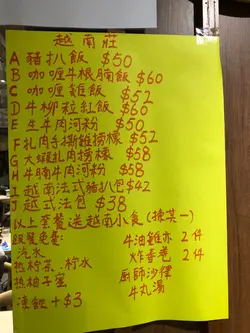 越南莊
A 豬扒飯 $50
B 咖喱牛根腩飯 $60
C 咖喱雞飯 $52
D 牛柳粒紅飯 $60
E 生牛肉河粉 $50
F 扎肉手撕雞撈檬 $52
G 大蝦扎肉撈檬 $58
H 牛腩牛肉河粉 $58
I 越南法式豬扒包 $42
J 越式法包 $38
以上套餐送越南小食(揀其一)
飯餐免費:
汽水
热柠茶、柠水
热柚子蜜
凍飲+$3
牛油雞亦 2件
炸春卷 2件
厨師沙律
牛丸湯